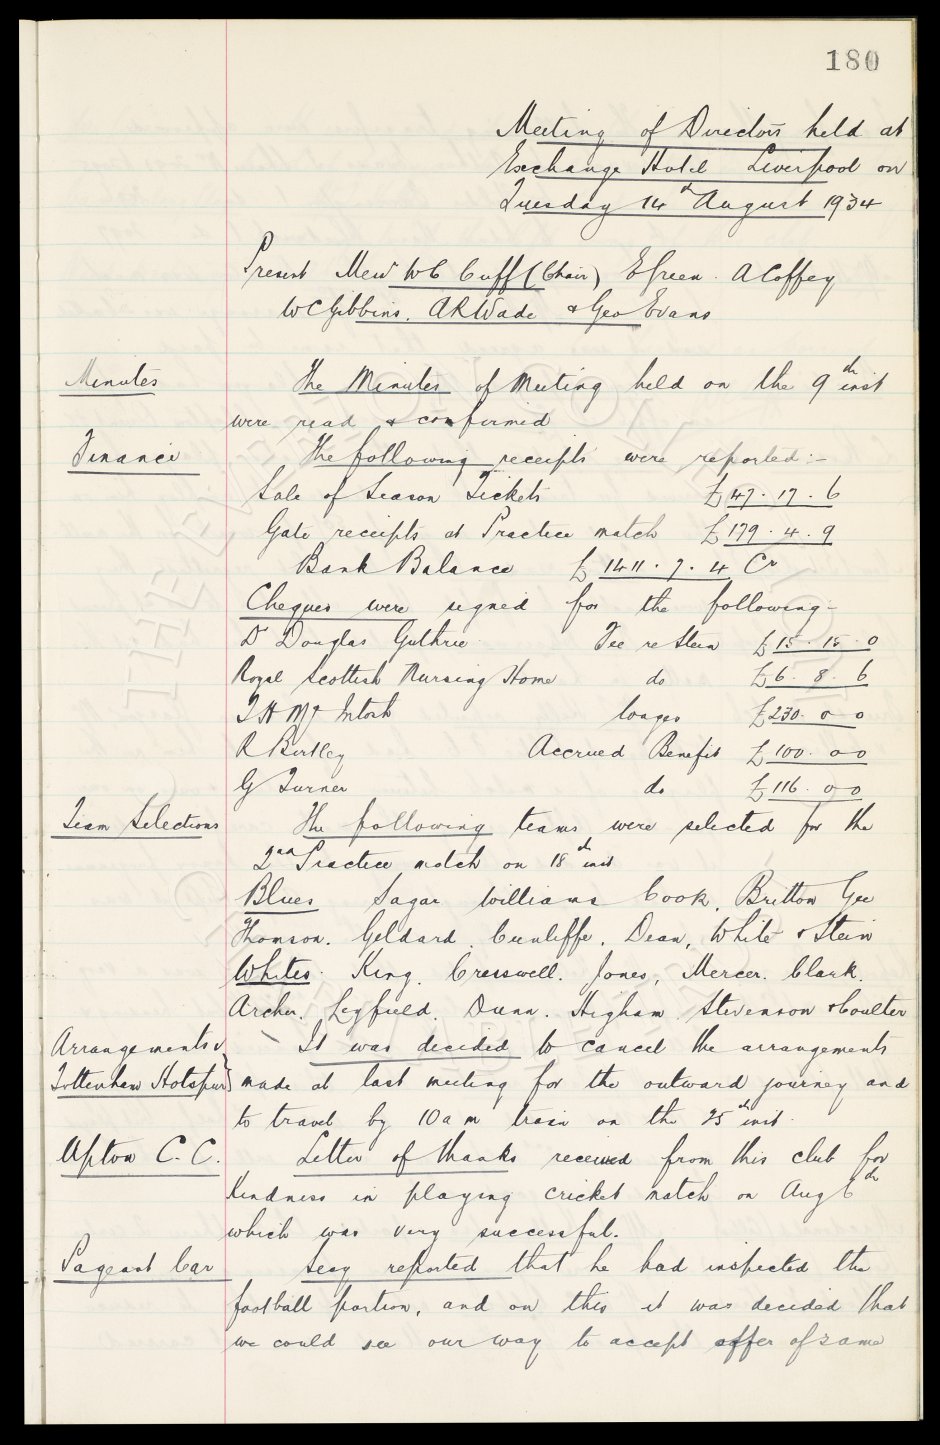 180
Meeting of Directors held at
Exchange Hotel Liverpool on
Tuesday 14th August 1934
Present Messrs WC Cuff (Chair) E Green. A Coffey
WC Gibbins. AR Wade & Geo Evans
Minutes The Minutes of Meeting held on the 9th inst
were read & confirmed
Finance The following receipts were reported:-
Sale of Season Tickets £47.17.6
Gate receipts at Practice match £179.4.9
Bank Balance £1411.7.4 Cr
Cheques were signed for the following:-
Dr Douglas Guthrie Fee re Stein £15.15.0
Royal Scottish Nursing Home do £6.8.6
T H McIntosh Wages £230.0.0
R Burtley Accrued Benefit £100.0.0
G Turner do £116.0.0
Team Selections The following teams were selected for the
2nd Practice match on 18th inst
Blues Sagar Williams Cook, Britton Gee
Thomson. Geldard, Cunliffe, Dean, White & Stein
Whites. King. Cresswell. Jones, Mercer. Clark.
Archer. Leyfield. Dunn. Higham. Stevenson & Coulter
Arrangements v It was decided to cancel the arrangements
Tottenham Hotspur made at last meeting for the outward journey and
to travel by 10 a m train on the 25th inst.
Upton C.C. Letter of thanks received from this club for
kindness in playing cricket match on Aug 6th
which was very successful.
Pageant Car Secy reported that he had inspected the
football portion, and on this it was decided that
we could see our way to accept offer of same